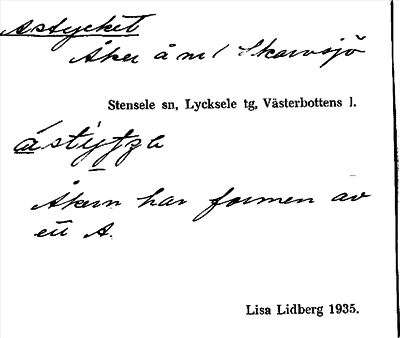 Astycket
Åker å nr 1 Skarvsjö
Stensele sn, Lycksele tg, Västerbottens l.
Åkern har formen av
ett A.
Lisa Lidberg 1935.